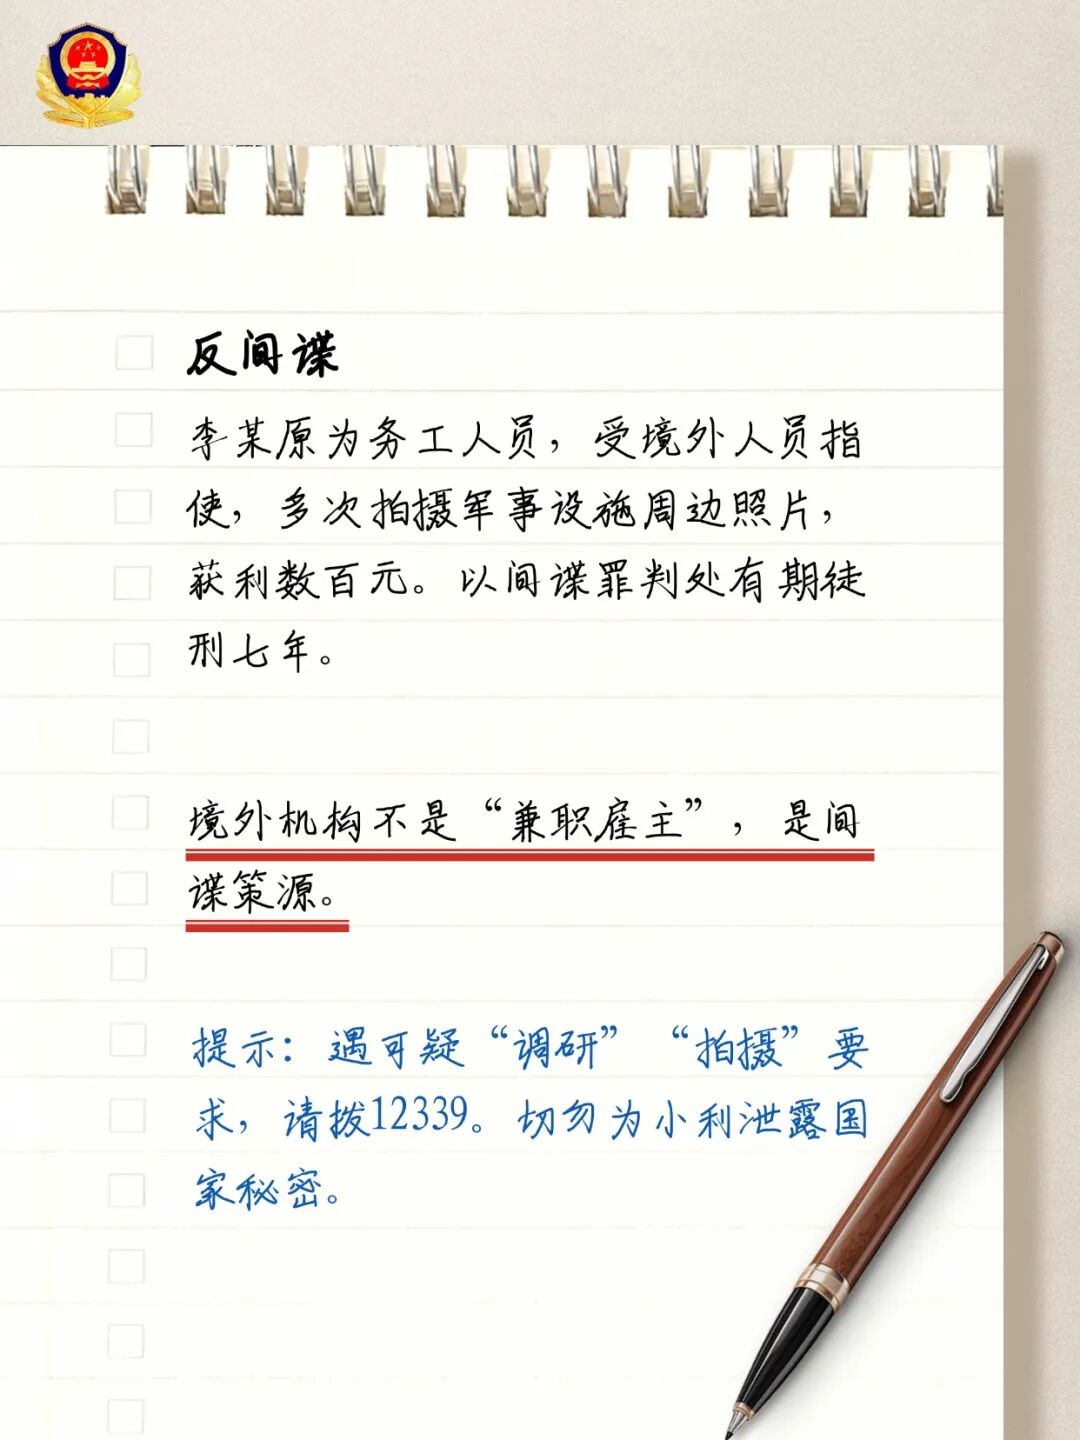 反间谍
李某原为务工人员，受境外人员指
使，多次拍摄军事设施周边照片，
获利数百元。以间谍罪判处有期徒
刑七年。
境外机构不是“兼职雇主”，是间
谍策源。
提示：遇可疑“调研”“拍摄”要
求，请拨12339。切勿为小利泄露国
家秘密。